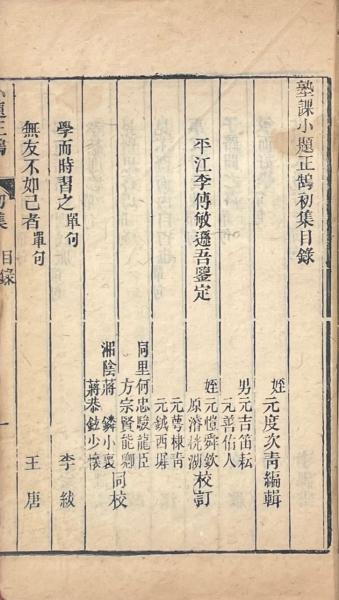 塾課小題正鵠初集目錄
平江李傳敏遜吾鑒定
姪元度次青編輯
男元吉笛耘
元善佑人
姪元愷舜欽校訂
原濬
元萼棣青
元鉞西墀
同里何忠駿龍臣
方宗賢能卿
湘陰蔣鏻小襄同校
蔣恭鉉少懷
學而時習之單句 李紱
無友不如己者單句 王唐
小題正鵠 初集 目錄 一